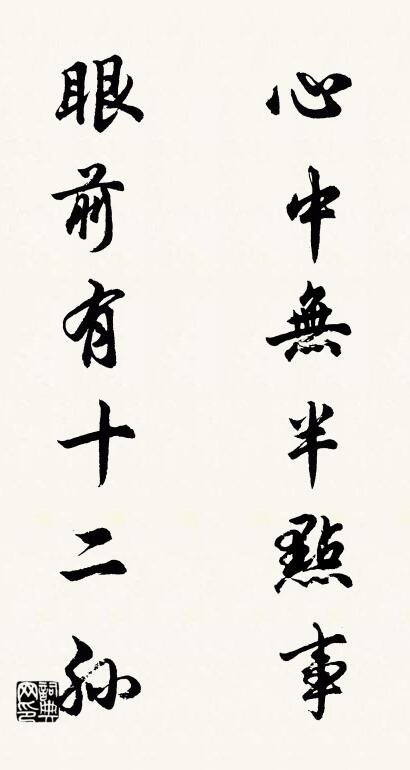 心中無半點事
眼前有十二孫
詞典網印